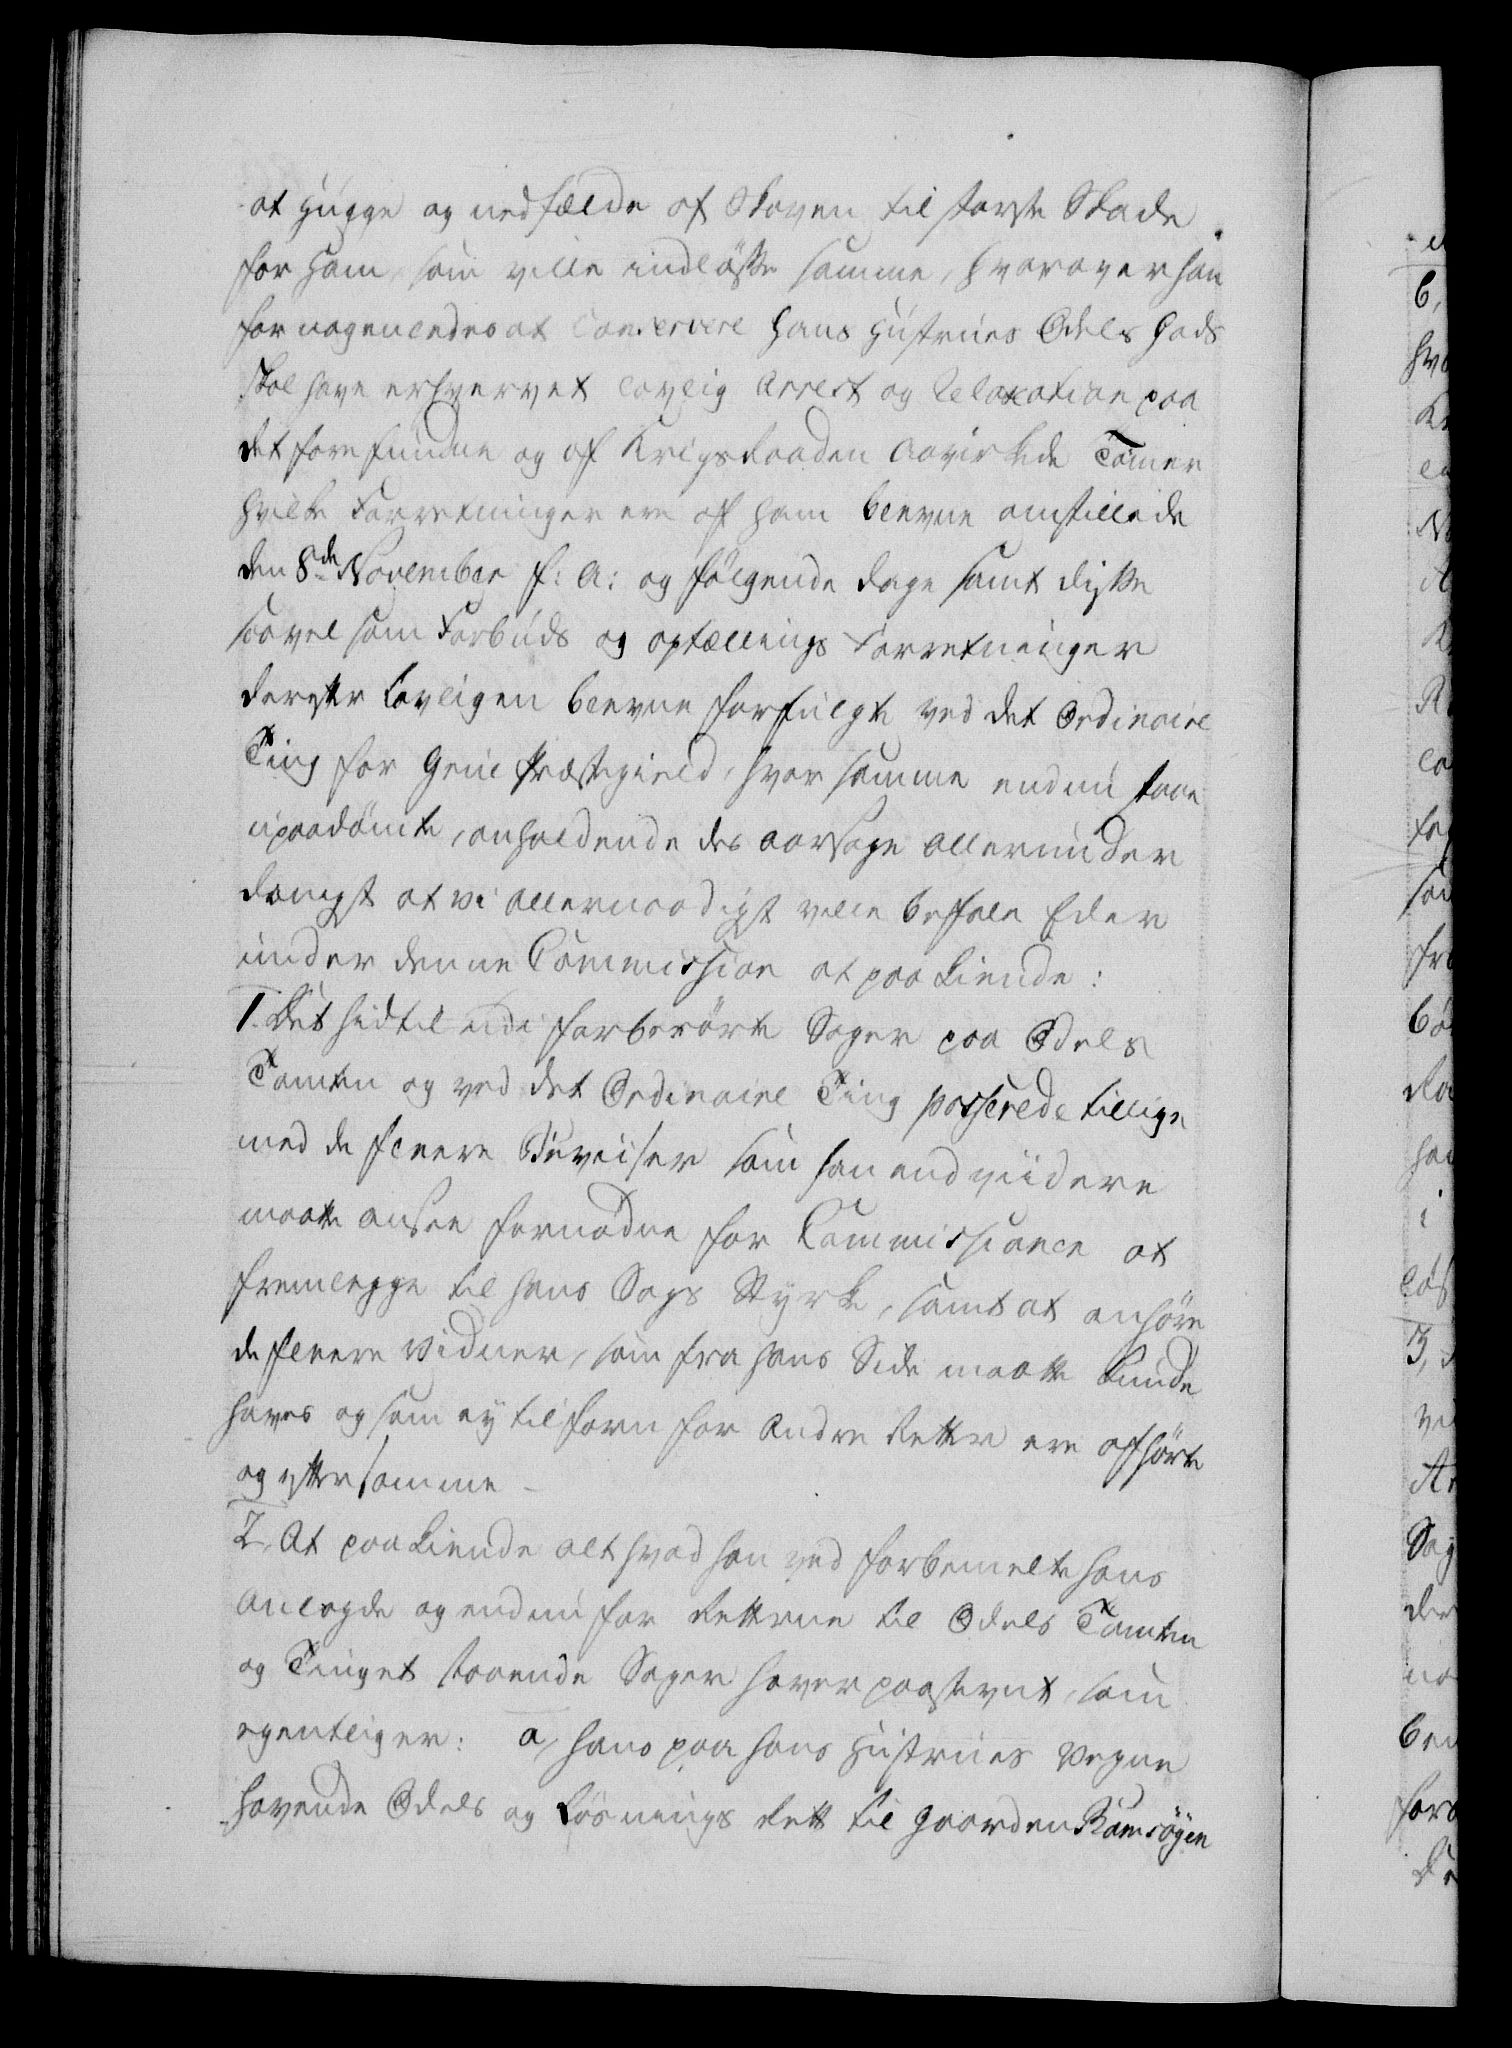 at hugge og nedfælde af Skoven til største Skade
for ham, som ville indløsse samme, hvorover han
for nogenledes at Conservere hans Hustrues Odels Gods
skal have erhvervet lovlig Arrest og Relaxation paa
det forefundne og af Krigsraaden Avirkede Tømer
hvilke Forretninger ere af ham blevne anstillede
den 8de November f: A: og følgende dage samt disse
saavel som Forbuds og optællings Forretninger
derefter lovligen blevne forfulgte ved det Ordinaire
Ting for Grue Præstegield, hvor samme endnu staae
upaadømte, anholdende des aarsage allerunder
danigst at vi allernaadigst ville befale Eder
under denne Commission at paakiende:
1. Det hidtil udi forberørte Sager paa Odels
Tomten og ved det Ordinaire Ting passerede tillige
med de fleere Beviiser som han end viidere
maatte ansee fornødne for Commissionen at
fremlegge til hans Sags Styrke, samt at anhøre
de fleere Vidner, som fra hans Side maatte kunde
haves og som ey tilforn for Andre Retter ere afhørte
og efter samme –
2, At paakiende alt hvad han ved forbemelte hans
anlagde og endnu for Retterne til Odels Tomten
og Tinget staaende Sager haver paastevnt, som
egentligen: a, hans paa hans Hustrues Vegne
havende Odels og Løsnings Rett til Gaarden Ramsøgen